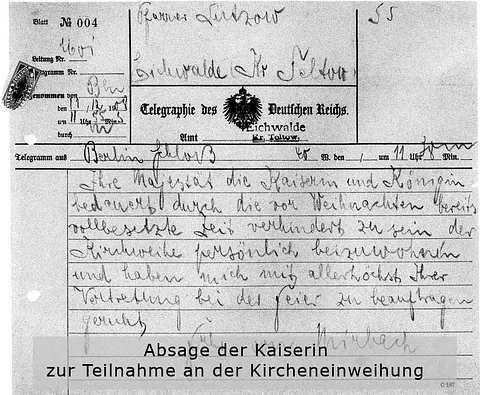 Blatt № 004
Pfarrer Lützow
55
Leitung No.
Telegramm Nr.
Eichwalde Kr. Teltow
Aufgenommen von Bln
den
um 11 Uhr 55 Min.
durch
Telegraphie des Deutschen Reichs.
Amt Eichwalde
Kr. Teltow.
Telegramm aus Berlin Schloß 40 W. den / um 11 Uhr Min.
Ihre Majestät die Kaiserin und Königin
bedauert durch die vor Weihnachten bereits
vollbesetzte Zeit verhindert zu sein der
Kirchweihe persönlich beizuwohnen
und haben mich mit allerhöchst Ihrer
Vertretung bei der Feier zu beauftragen
geruht
Frhr von Mirbach
Absage der Kaiserin
zur Teilnahme an der Kircheneinweihung
C 187